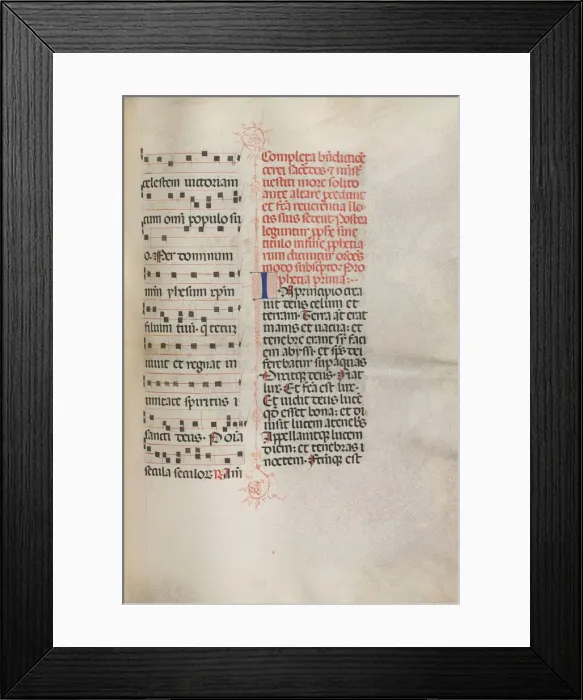 celestem uictoriam
cum om̄i populo su
o. Per dominum
nr̄m yhesum xp̄m
filium tuū. q̄ tecū
uiuit et regnat in
unitate spiritus
sancti deus. P oīa
secula seculoꝝ Am̄
Completa bn̄dictiōe
cerei sacēdos ⁊
uestiti more solito
ante altare
et fc̄a reuerentia
cis suis sedent. Postea
leguntur sine
titulo in fine
rum dicuntur orōes
modo subscpto. Pro
phetia prima:
In principio crea
uit deus celum et
terram. Terra aūt erat
inanis et uacua: et
tenebre erant sup̄ faci
em abyssi: et sp̄s dei
ferebatur sup̄ aquas
Dixitqꝫ deus. Fiat
lux. Et fc̄a est lux.
Et uidit deus lucē
qd̄ esset bona: et di
uisit lucem a tenebs
Appellauitqꝫ lucem
diem: et tenebras
noctem. est